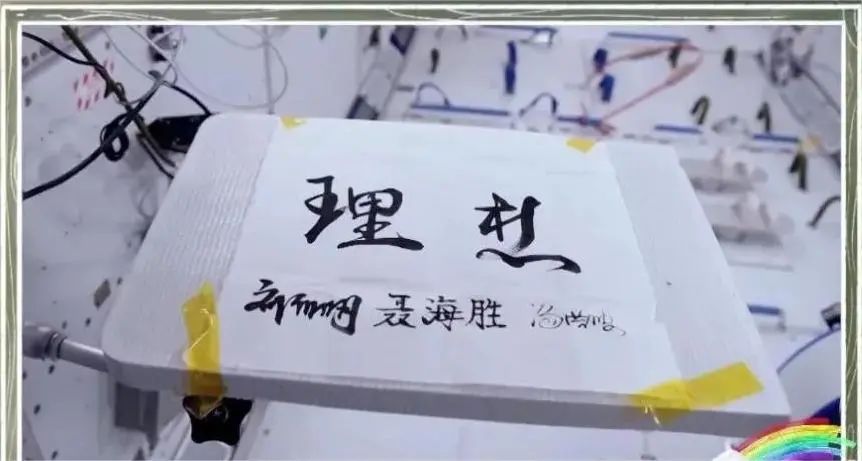 理想
刘伯明 聂海胜 汤洪波